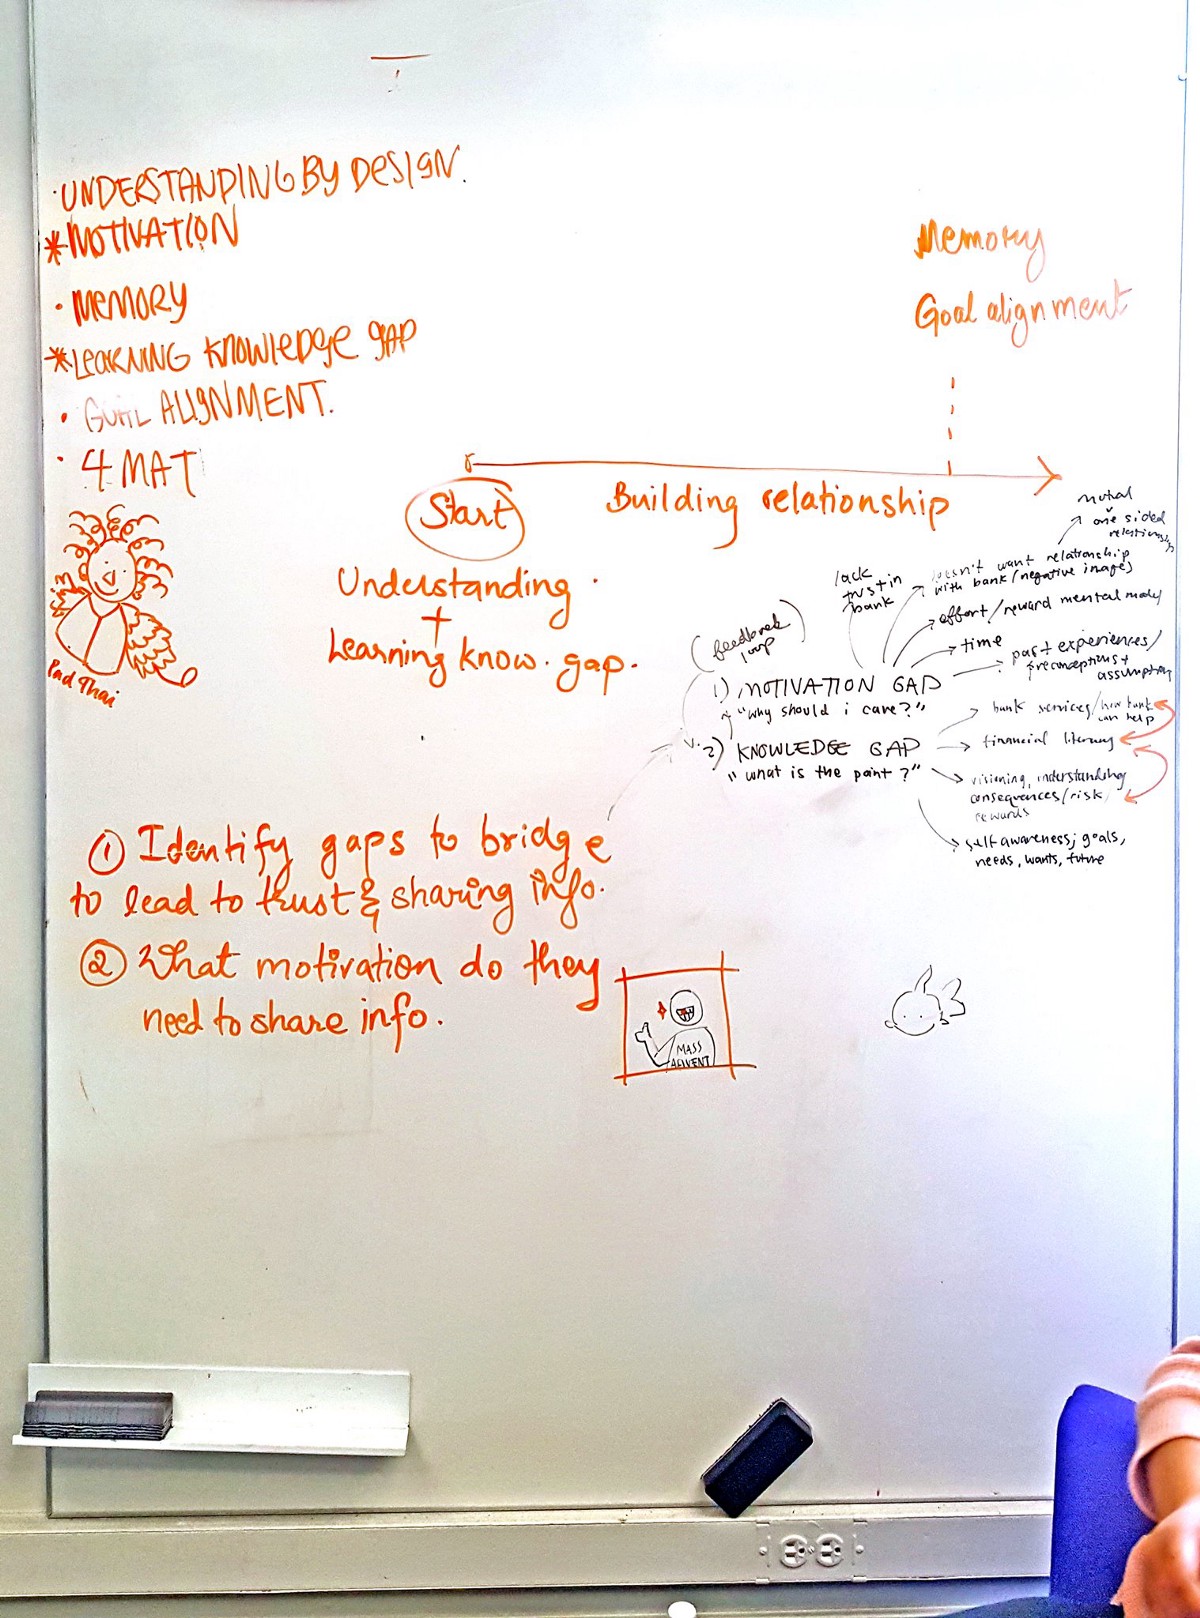 · UNDERSTANDING BY DESIGN.
* MOTIVATION
· MEMORY
* LEARNING KNOWLEDGE GAP
· GOAL ALIGNMENT.
· 4 MAT
Pad Thai
Memory
Goal alignment
Start
Building relationship
Understanding
+
Learning know. gap.
(feedback
loop)
lack
trust in
bank
doesn't want relationship
with bank/(negative image)
mutual
one sided
relationship
effort/reward mental model
time
past experiences/
preconceptions+
assumption
1) MOTIVATION GAP
"why should i care?"
2) KNOWLEDGE GAP
"what is the point?"
bank services/how bank
can help
financial literacy
visioning, understanding
consequences/risk/
rewards
self awareness; goals,
needs, wants, future
① Identify gaps to bridge
to lead to trust & sharing info.
② What motivation do they
need to share info.
MASS